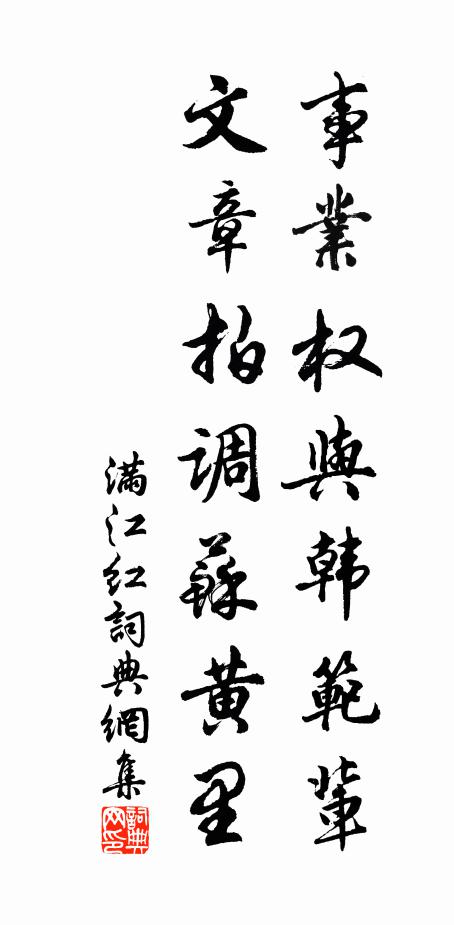 事業权與韩範輩
文章拍調蘇黄里
满江红詞典網集
詞典網印